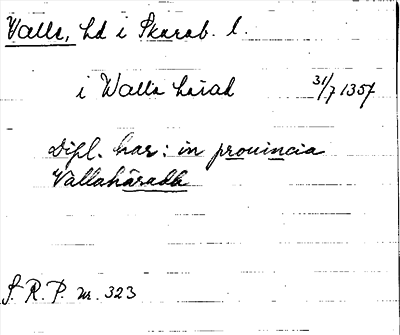 Valle, hd i Skarab. l.
i Walla härad 31/7 1357
Dipl. har: in prouincia
Vallahäradh
S. R. P. nr. 323